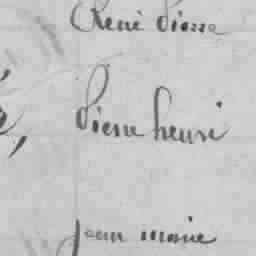 René Pierre
Pierre henri
jean marie